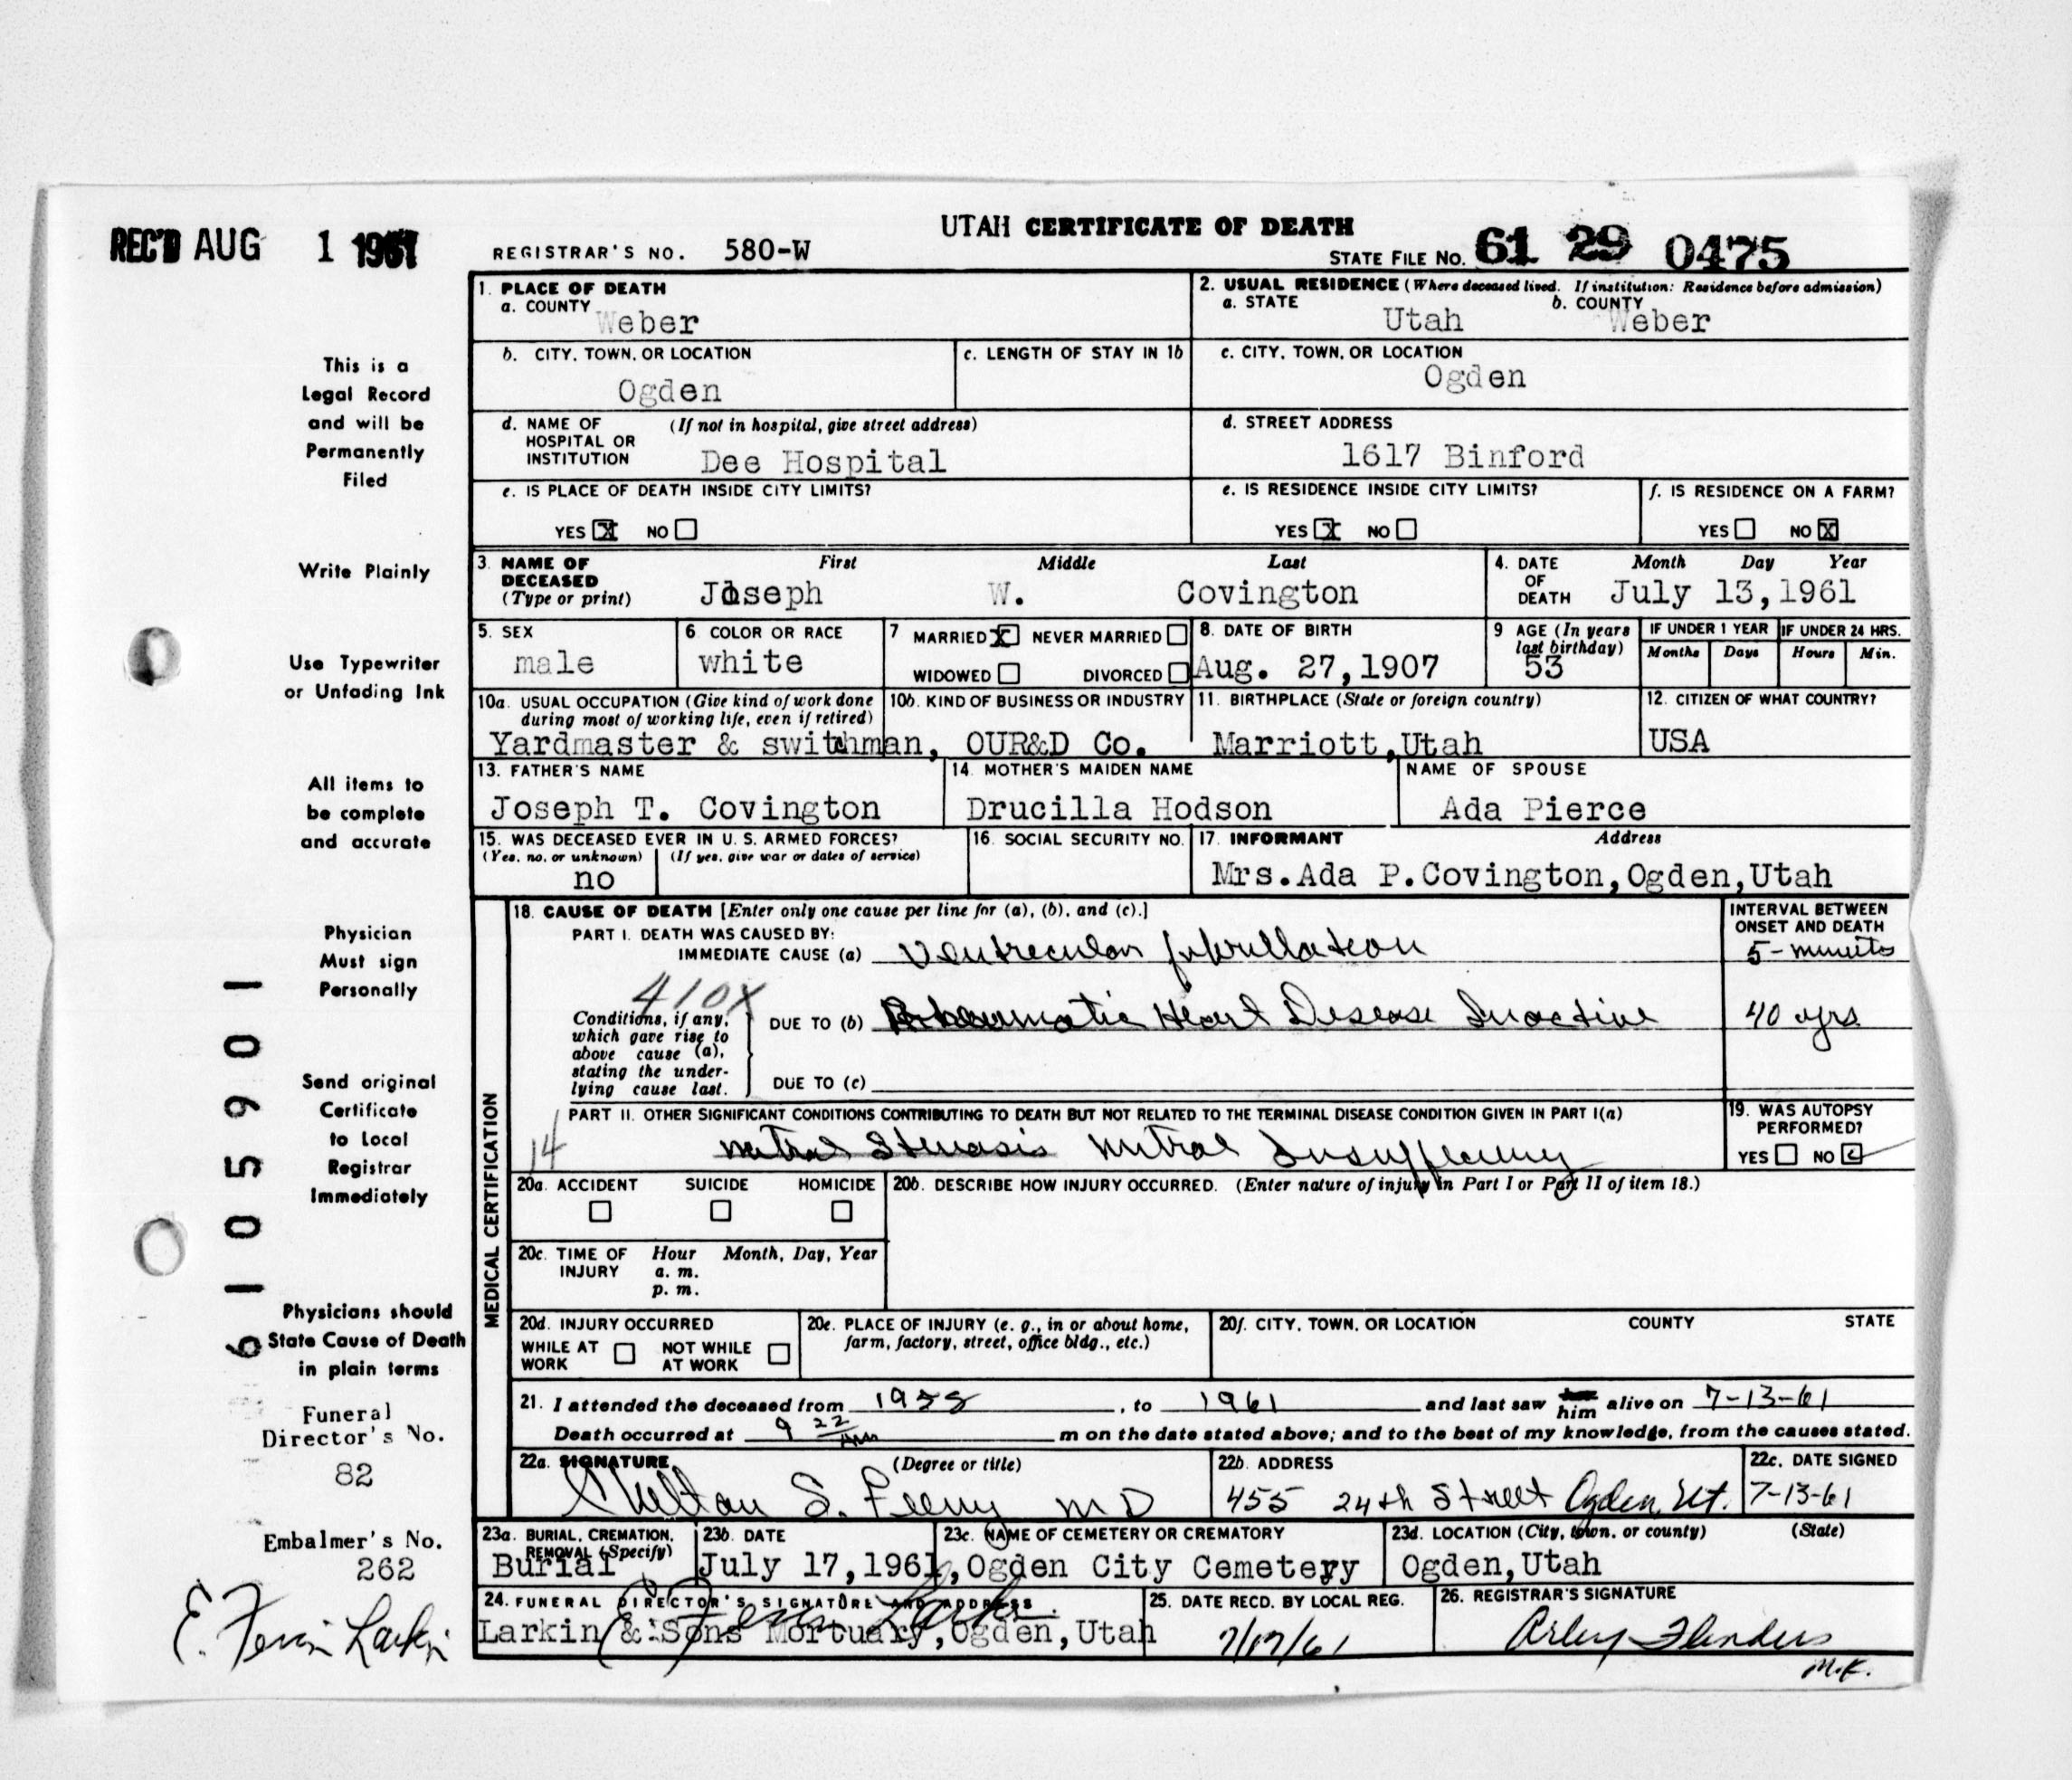 UTAH CERTIFICATE OF DEATH
REC'D AUG 1 1961
REGISTRAR'S NO. 580-W
STATE FILE No. 61 29 0475
1. PLACE OF DEATH
a. COUNTY Weber
2. USUAL RESIDENCE (Where deceased lived. If institution: Residence before admission)
a. STATE Utah b. COUNTY Weber
b. CITY, TOWN, OR LOCATION Ogden
c. LENGTH OF STAY IN 1b
c. CITY, TOWN, OR LOCATION Ogden
d. NAME OF HOSPITAL OR INSTITUTION (If not in hospital, give street address) Dee Hospital
d. STREET ADDRESS 1617 Binford
e. IS PLACE OF DEATH INSIDE CITY LIMITS? YES X NO
e. IS RESIDENCE INSIDE CITY LIMITS? YES X NO
f. IS RESIDENCE ON A FARM? YES NO X
3. NAME OF DECEASED (Type or print) First Middle Last
Joseph W. Covington
4. DATE OF DEATH Month Day Year
July 13,1961
5. SEX male
6 COLOR OR RACE white
7 MARRIED X NEVER MARRIED
WIDOWED DIVORCED
8. DATE OF BIRTH Aug. 27,1907
9 AGE (In years last birthday) 53
IF UNDER 1 YEAR Months Days
IF UNDER 24 HRS. Hours Min.
10a. USUAL OCCUPATION (Give kind of work done during most of working life, even if retired)
10b. KIND OF BUSINESS OR INDUSTRY
Yardmaster & switchman, OUR&D Co.
11. BIRTHPLACE (State or foreign country) Marriott,Utah
12. CITIZEN OF WHAT COUNTRY? USA
13. FATHER'S NAME Joseph T. Covington
14. MOTHER'S MAIDEN NAME Drucilla Hodson
NAME OF SPOUSE Ada Pierce
15. WAS DECEASED EVER IN U. S. ARMED FORCES?
(Yes, no, or unknown) (If yes, give war or dates of service)
no
16. SOCIAL SECURITY NO.
17. INFORMANT Address
Mrs.Ada P.Covington,Ogden,Utah
MEDICAL CERTIFICATION
18. CAUSE OF DEATH [Enter only one cause per line for (a), (b), and (c).]
INTERVAL BETWEEN ONSET AND DEATH
PART I. DEATH WAS CAUSED BY:
IMMEDIATE CAUSE (a) Ventricular fibrillation 5-minutes
410X
Conditions, if any, which gave rise to above cause (a), stating the underlying cause last.
DUE TO (b) Rheumatic Heart Disease Inactive 40 yrs
DUE TO (c)
PART II. OTHER SIGNIFICANT CONDITIONS CONTRIBUTING TO DEATH BUT NOT RELATED TO THE TERMINAL DISEASE CONDITION GIVEN IN PART I(a)
14 Mitral Stenosis Mitral Insufficiency
19. WAS AUTOPSY PERFORMED? YES NO
20a. ACCIDENT SUICIDE HOMICIDE
20b. DESCRIBE HOW INJURY OCCURRED. (Enter nature of injury in Part I or Part II of item 18.)
20c. TIME OF INJURY Hour Month, Day, Year
a. m.
p. m.
20d. INJURY OCCURRED
WHILE AT WORK NOT WHILE AT WORK
20e. PLACE OF INJURY (e. g., in or about home, farm, factory, street, office bldg., etc.)
20f. CITY, TOWN, OR LOCATION COUNTY STATE
21. I attended the deceased from 1958, to 1961 and last saw him alive on 7-13-61
Death occurred at 9 22 AM m on the date stated above; and to the best of my knowledge, from the causes stated.
22a. SIGNATURE (Degree or title) M D
22b. ADDRESS 455 24th Street Ogden, Ut.
22c. DATE SIGNED 7-13-61
23a. BURIAL, CREMATION, REMOVAL (Specify) Burial
23b. DATE July 17,1961,
23c. NAME OF CEMETERY OR CREMATORY Ogden City Cemetery
23d. LOCATION (City, town, or county) (State) Ogden,Utah
24. FUNERAL DIRECTOR'S SIGNATURE AND ADDRESS
Larkin & Sons Mortuary,Ogden,Utah
25. DATE RECD. BY LOCAL REG. 7/17/61
26. REGISTRAR'S SIGNATURE Arley Flinders
M.F.
This is a
Legal Record
and will be
Permanently
Filed
Write Plainly
Use Typewriter
or Unfading Ink
All items to
be complete
and accurate
Physician
Must sign
Personally
Send original
Certificate
to Local
Registrar
Immediately
Physicians should
State Cause of Death
in plain terms
6105901
Funeral
Director's No.
82
Embalmer's No.
262
E. Fervin Larkin